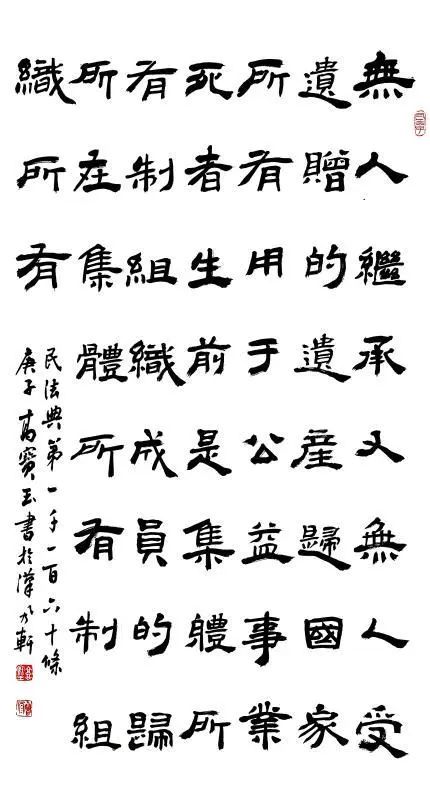 無人繼承又無人受
遺贈的遺産歸國家
所有用于公益事業
死者生前是集軆所
有制組織成員的歸
所在集體所有制組
織所有
民法典第一千一百六十條
庚子高寶玉書於漢軒